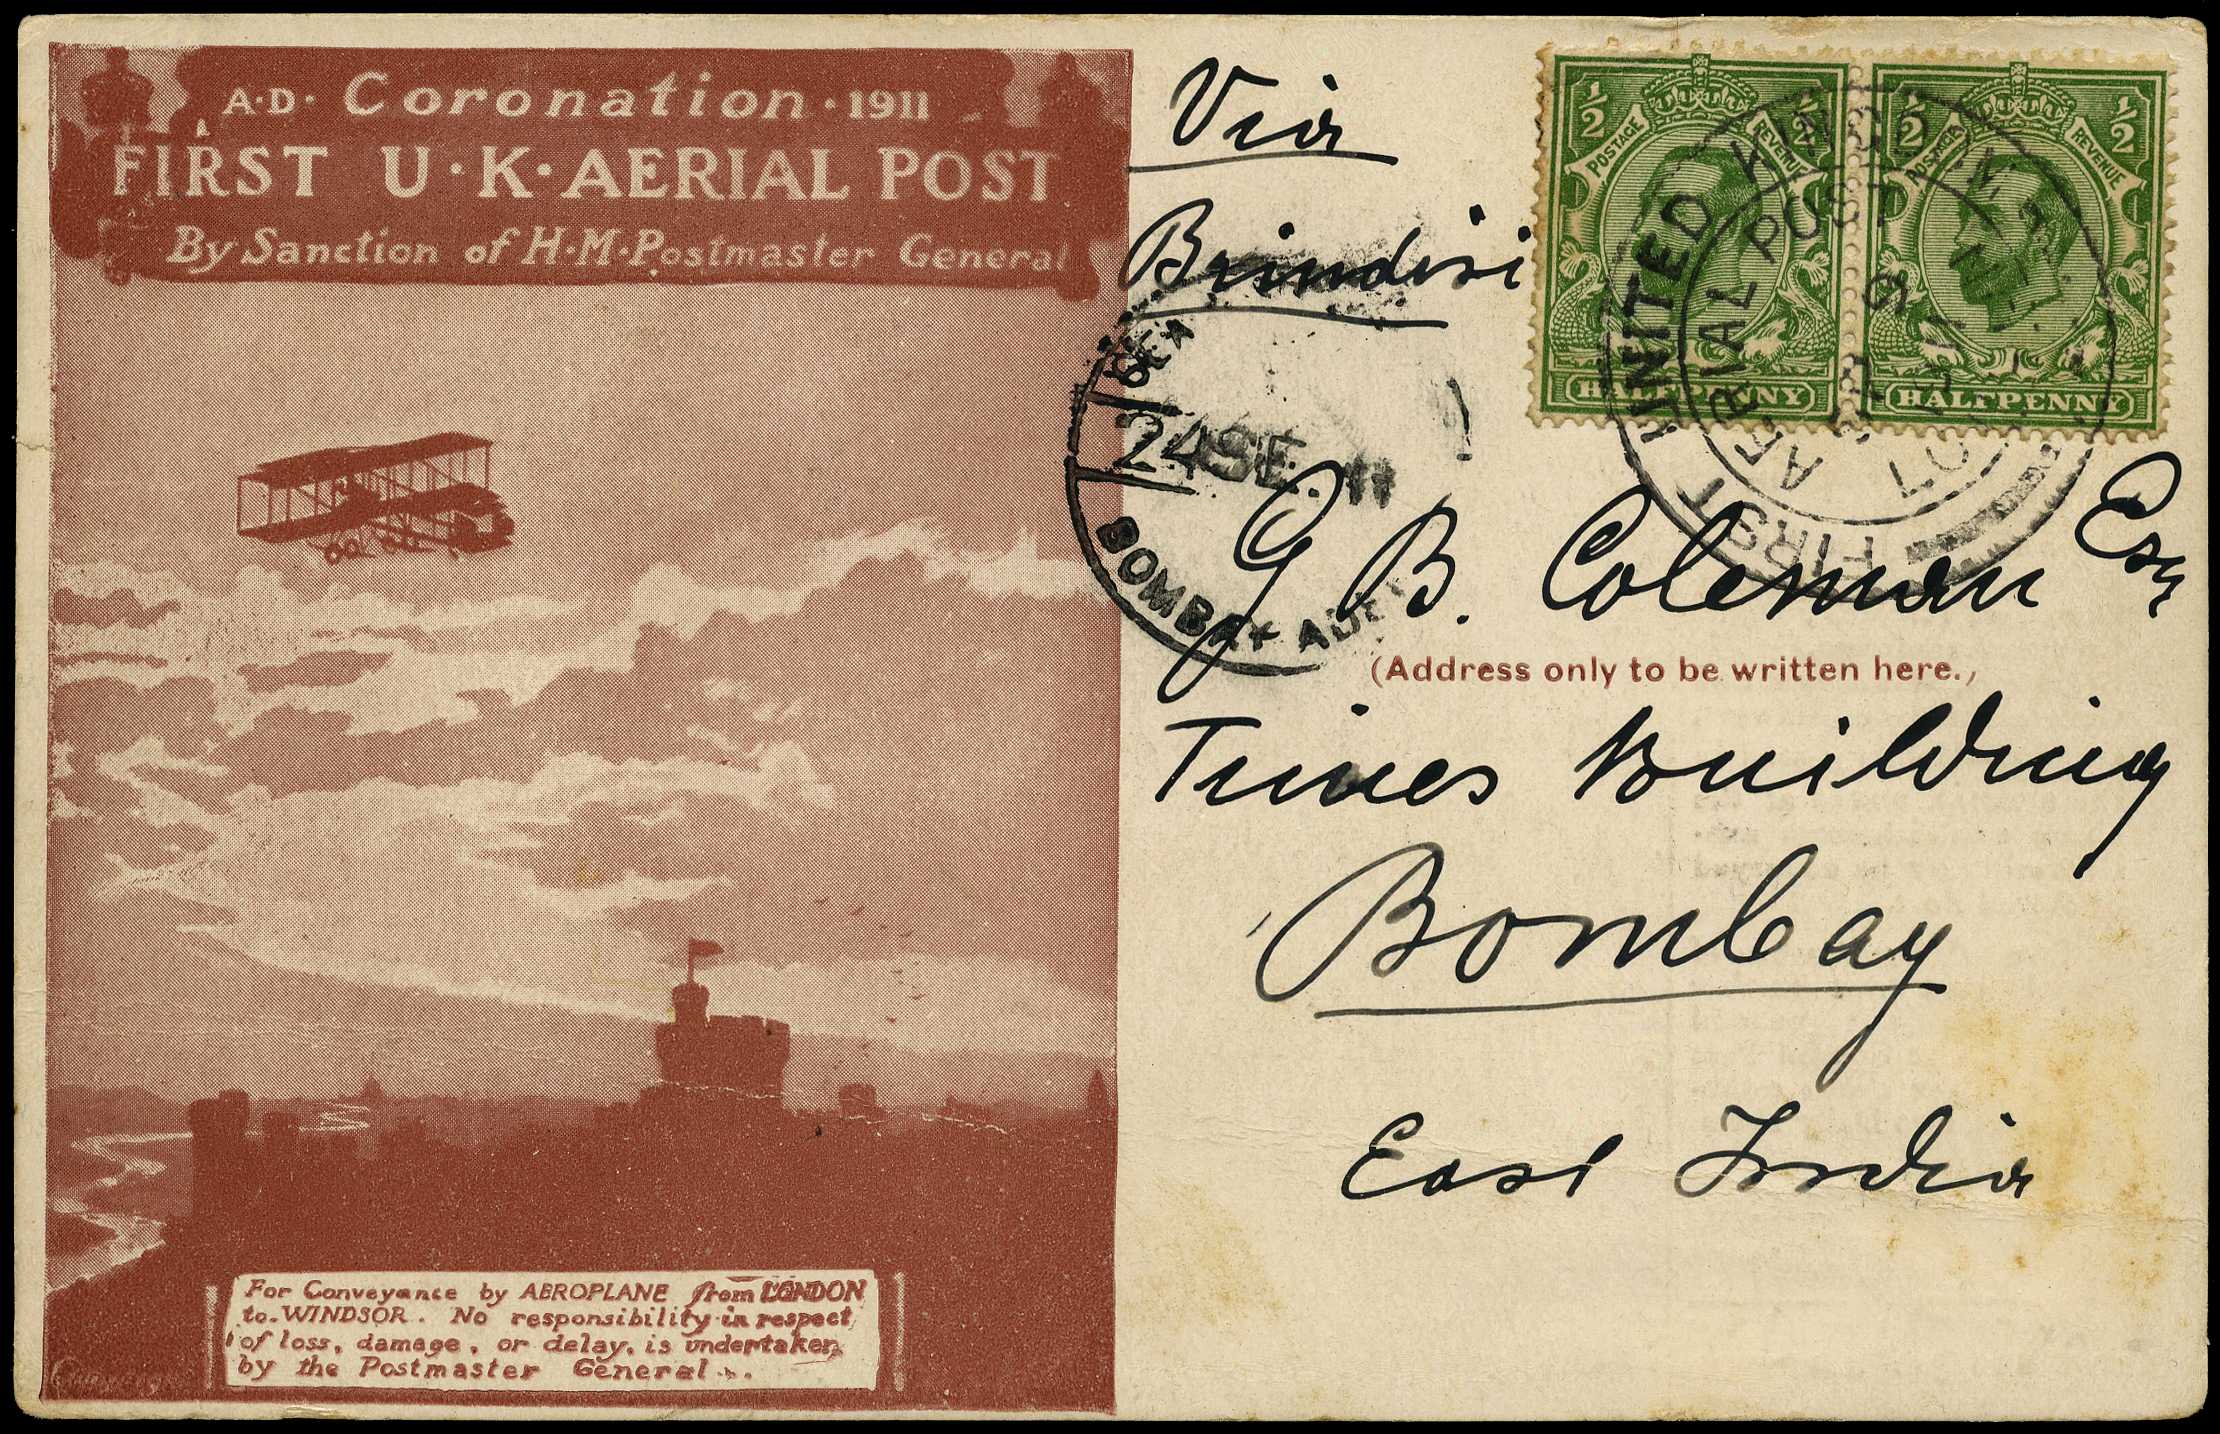 A·D· Coronation · 1911
FIRST U·K·AERIAL POST
By Sanction of H·M·Postmaster General
For Conveyance by AEROPLANE from LONDON
to WINDSOR. No responsibility in respect
of loss, damage, or delay, is undertaken
by the Postmaster General.
Via
Brindisi
½ ½
POSTAGE REVENUE
HALFPENNY
½ ½
POSTAGE REVENUE
HALFPENNY
FIRST UNITED KINGDOM
AERIAL POST
SEA
24 SE. 11
BOMBAY ADEN
G B. Coleman Esq
(Address only to be written here.)
Times Building
Bombay
East India